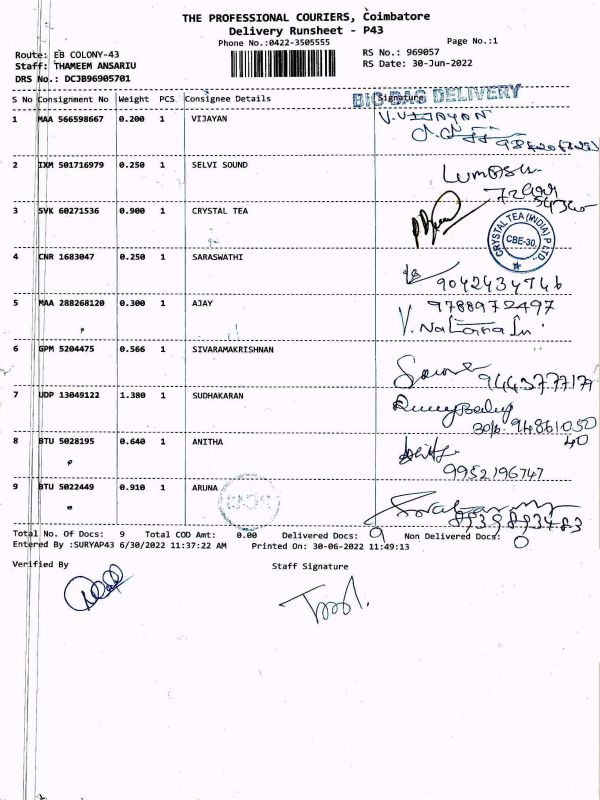 THE PROFESSIONAL COURIERS, Coimbatore
Delivery Runsheet - P43
Phone No.:0422-3505555
Page No.:1
Route: EB COLONY-43
RS No.: 969057
Staff: THAMEEM ANSARIU
RS Date: 30-Jun-2022
DRS No.: DCJB96905701
S No Consignment No Weight PCS Consignee Details Signature
BIG BAG DELIVERY
1 MAA 566598667 0.200 1 VIJAYAN V.VIJAYAN
2 IXM 501716979 0.250 1 SELVI SOUND
3 SVK 60271536 0.900 1 CRYSTAL TEA
CRYSTAL TEA (INDIA) P LTD
CBE-30.
4 CNR 1683047 0.250 1 SARASWATHI
9042434746
5 MAA 288268120 0.300 1 AJAY 9788972497
6 GPM 5204475 0.566 1 SIVARAMAKRISHNAN
9443777179
7 UDP 13049122 1.380 1 SUDHAKARAN
8 BTU 5028195 0.640 1 ANITHA
9952196747
9 BTU 5022449 0.910 1 ARUNA
Total No. Of Docs: 9 Total COD Amt: 0.00 Delivered Docs: 9 Non Delivered Docs: 0
Entered By :SURYAP43 6/30/2022 11:37:22 AM Printed On: 30-06-2022 11:49:13
Verified By Staff Signature